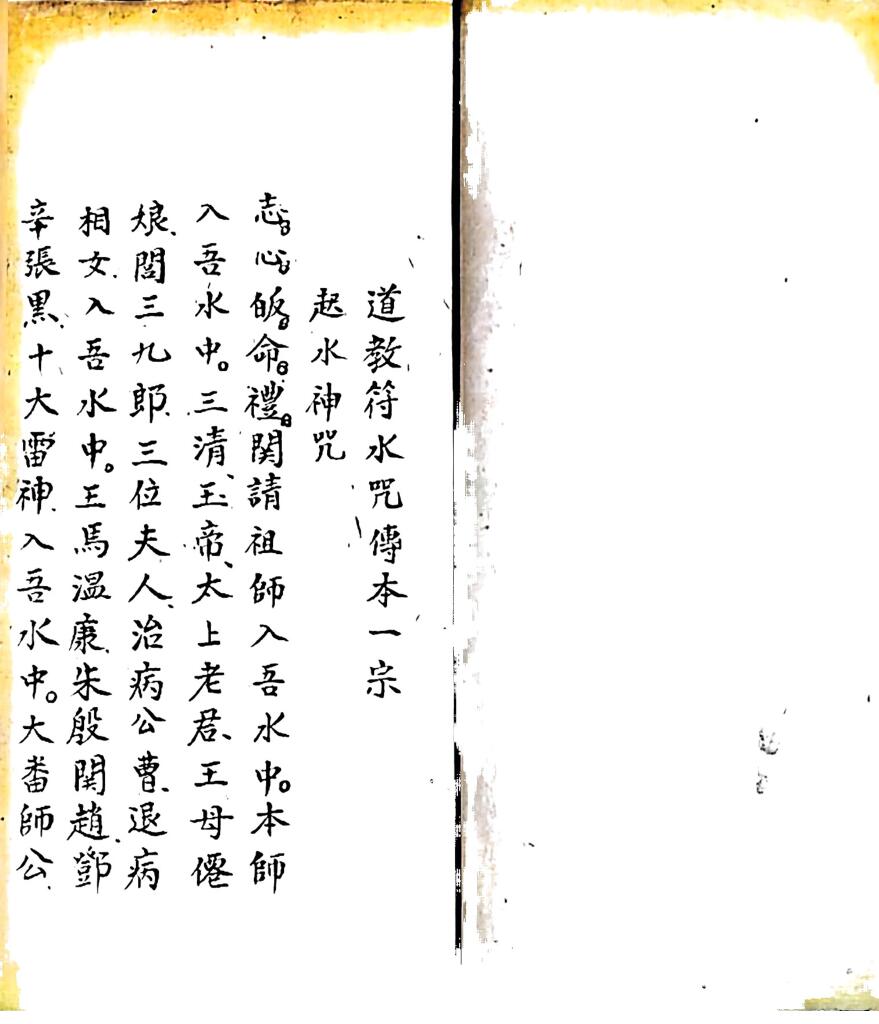 道教符水咒傳本一宗
起水神咒
志心皈命禮。関請祖師入吾水中。本師
入吾水中。三清、玉帝、太上老君、王母僊
娘、閭三九郎、三位夫人、治病公曹、退病
相女、入吾水中。王馬溫康、朱殷関趙、鄧
辛張黒、十大雷神、入吾水中。大番師公、